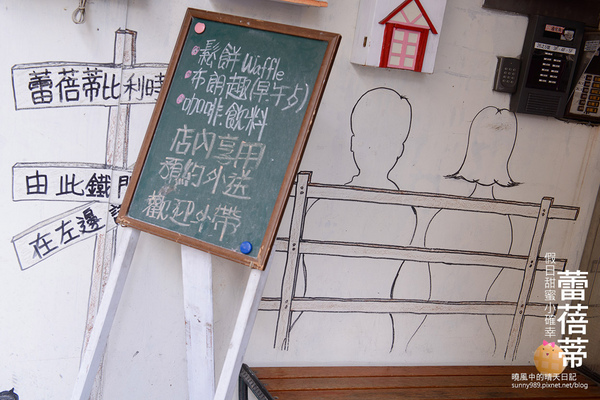 蕾蓓蒂比利時
由此鐵門
在左邊
鬆餅 Waffle
布朗趣(早午夕)
咖啡飲料
店內享用
預約外送
歡迎外帶
假日甜蜜小確幸
蕾蓓蒂
曉風中的晴天日記
sunny989.pixnet.net/blog